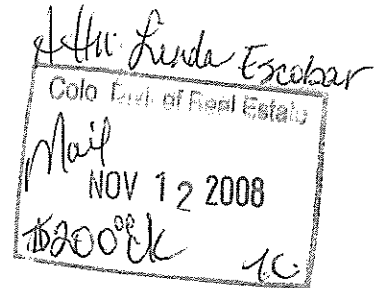 Attn: Linda Escobar
Colo Div. of Real Estate
Mail
NOV 12 2008
$200⁰⁰ ck